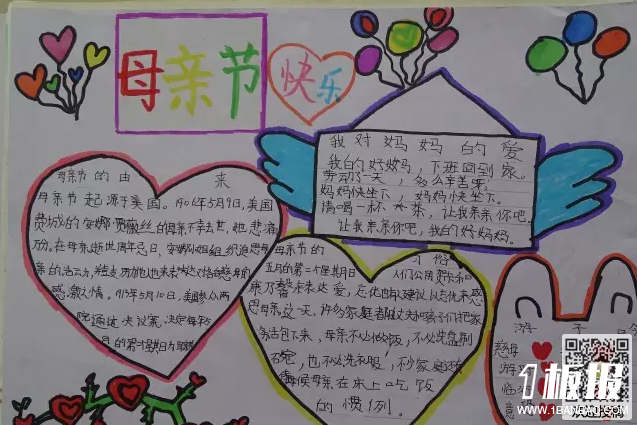 母亲节
快乐
我对妈妈的爱
我的好妈妈,下班回到家。
劳动了一天,多么辛苦呀。
妈妈快坐下,妈妈快坐下。
请喝一杯茶,让我亲亲你吧。
让我亲亲你吧,我的好妈妈。
母亲节的由来
母亲节起源于美国。1906年5月9日,美国
费城的安娜·贾薇丝的母亲不幸去世,她悲痛
万分。在母亲逝世周年忌日,安娜小姐组织追思母
亲的活动,
感激之情。1913年5月10日,美国参众两
院通过决议案,决定每年5
月的第二个星期日为母亲节
母亲节的习俗
五月的第二个星期日 人们公用贺卡和
康乃馨来表达爱,忘忧也被建议以忘忧来感
思母亲,这一天,许多家庭都由丈夫和孩子们把家
务活包下来,母亲不必做饭,不必洗盘刷
碗,也不必洗衣服,不少家庭还有
侍候母亲在床上吃饭
的惯例。
游子
慈母
游
临
意
1板报
WWW.1BANBAO.COM